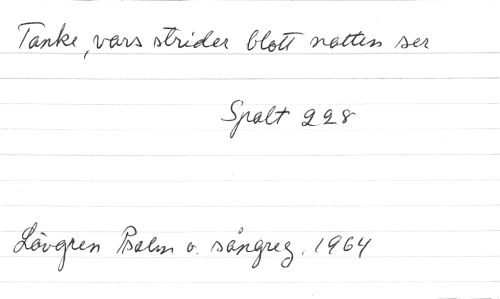 Tanke, vars strider blott natten ser
Spalt 228
Lövgren Psalm o. sångreg. 1964